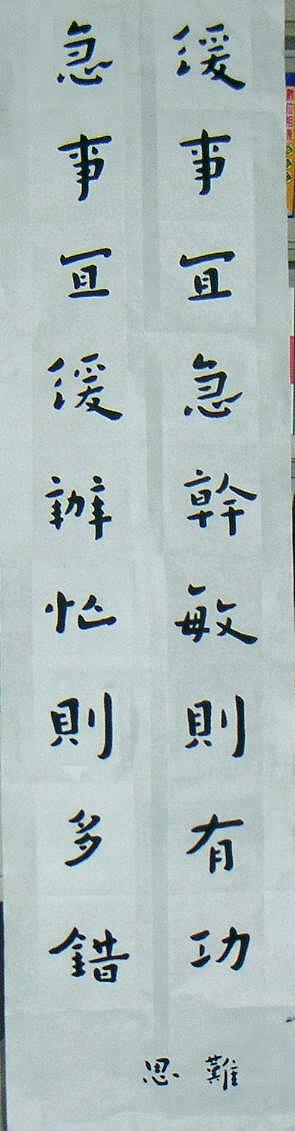 緩事宜急幹敏則有功
急事宜緩辦忙則多錯
難思